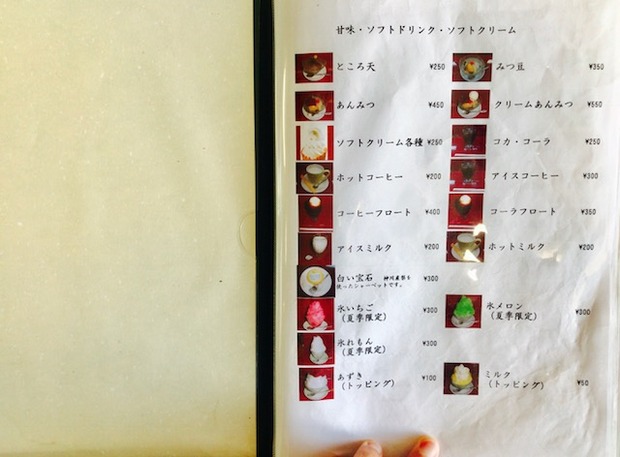 甘味・ソフトドリンク・ソフトクリーム
ところ天 ¥250 みつ豆 ¥350
あんみつ ¥450 クリームあんみつ ¥550
ソフトクリーム各種 ¥250 コカ・コーラ ¥250
ホットコーヒー ¥200 アイスコーヒー ¥300
コーヒーフロート ¥400 コーラフロート ¥350
アイスミルク ¥200 ホットミルク ¥200
白い宝石 ¥300
使ったシャーベットです。
氷いちご ¥300 氷メロン ¥300
(夏季限定) (夏季限定)
氷れもん ¥300
(夏季限定)
あずき ¥100 ミルク ¥50
(トッピング) (トッピング)